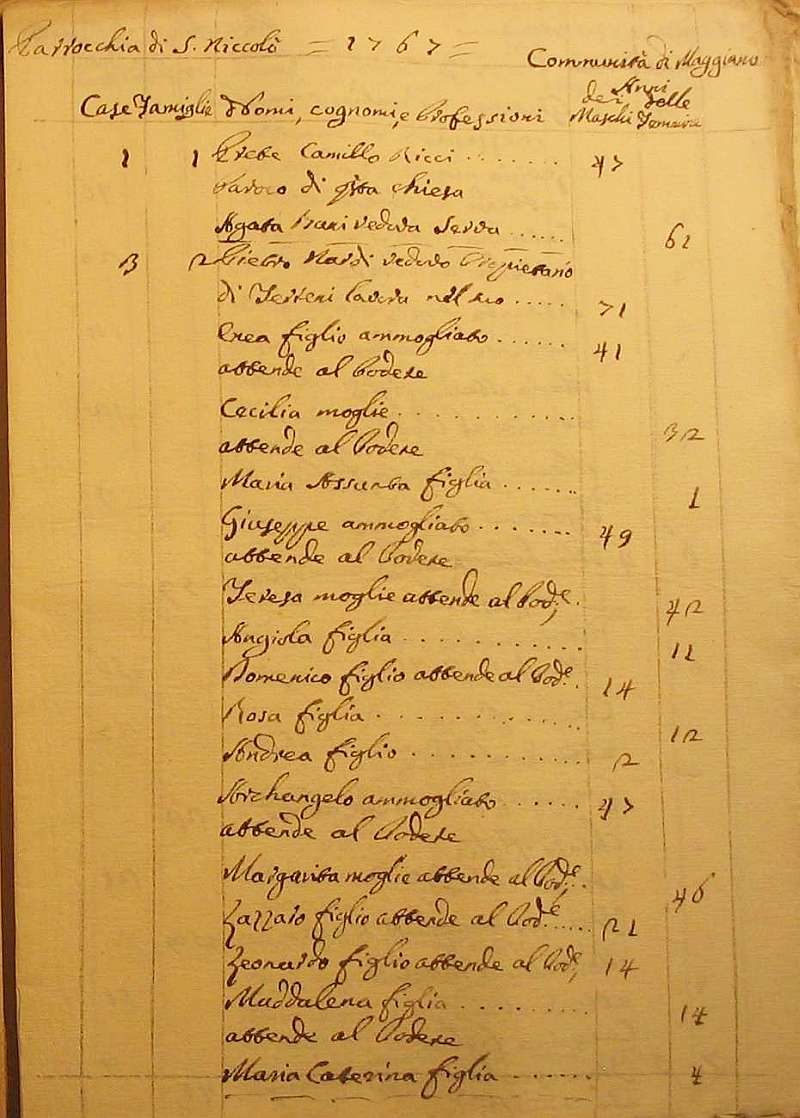 Parrocchia di S. Niccolò = 1767 = Communità di Maggiano
Case Famiglie Nomi, cognomi, e Professioni Anni dei Maschi delle Femine
1 1 Prete Camillo Ricci ....... 47
Paroco di qsta chiesa
Agata Bani vedova Serva ...... 61
3 2 Pietro Nardi vedovo Propietario
di Terreni lavora nel suo ..... 71
Enea figlio ammogliato ...... 41
attende al Podere
Cecilia moglie ............ 32
attende al Podere
Maria Assunta figlia ...... 1
Giuseppe ammogliato ....... 49
attende al Podere
Teresa moglie attende al Pode. 42
Angiola figlia ............ 11
Domenico figlio attende al Pode. 14
Rosa figlia ............ 12
Andrea figlio ........... 2
Archangelo ammogliato ...... 47
attende al Podere
Margarita moglie attende al Pode... 46
Lazzaro figlio attende al Pode...... 21
Leonardo figlio attende al Pode, 14
Maddalena figlia ......... 14
attende al Podere
Maria Caterina figlia ...... 4